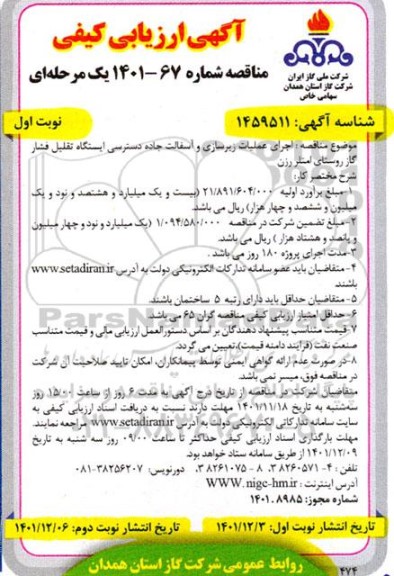 آگهی ارزیابی کیفی
مناقصه شماره ۶۷-۱۴۰۱ یک مرحله‌ای
شرکت ملی گاز ایران
شرکت گاز استان همدان
سهامی خاص
شناسه آگهی: ۱۴۵۹۵۱۱
نوبت اول
موضوع مناقصه: اجرای عملیات زیرسازی و آسفالت جاده دسترسی ایستگاه تقلیل فشار
گاز روستای امتلر رزن
شرح مختصر کار:
۱-مبلغ برآورد اولیه ۲۱/۸۹۱/۶۰۴/۰۰۰ (بیست و یک میلیارد و هشتصد و نود و یک
میلیون و ششصد و چهار هزار) ریال می باشد.
۲-مبلغ تضمین شرکت در مناقصه ۱/۰۹۴/۵۸۰/۰۰۰ (یک میلیارد و نود و چهار میلیون
و پانصد و هشتاد هزار ) ریال می باشد.
۳-مدت اجرای پروژه ۱۸۰ روز می باشد .
۴-متقاضیان باید عضو سامانه تدارکات الکترونیکی دولت به آدرس www.setadiran.ir
باشند.
۵-متقاضیان حداقل باید دارای رتبه ۵ ساختمان باشند.
۶-حداقل امتیاز ارزیابی کیفی مناقصه گران ۶۵ می باشد
۷-قیمت متناسب پیشنهاد دهندگان بر اساس دستورالعمل ارزیابی مالی و قیمت متناسب
صنعت نفت (فرآیند دامنه قیمت) تعیین می گردد.
۸-در صورت عدم ارائه گواهی ایمنی توسط پیمانکاران، امکان تایید صلاحیت آن شرکت
در مناقصه فوق، میسر نمی باشد.
متقاضیان شرکت در مناقصه از تاریخ درج آگهی به مدت ۶ روز از ساعت ۱۵:۰۰ روز
سه‌شنبه به تاریخ ۱۴۰۱/۱۱/۱۸ مهلت دارند نسبت به دریافت اسناد ارزیابی کیفی به
سایت سامانه تدارکاتی الکترونیکی دولت به آدرس www.setadiran.ir مراجعه نمایند.
مهلت بارگذاری اسناد ارزیابی کیفی حداکثر تا ساعت ۰۹/۰۰ روز سه شنبه به تاریخ
۱۴۰۱/۱۲/۰۹ از طریق سامانه ستاد خواهد بود.
تلفن : ۴- ۳۸۲۶۰۵۷۱ ، ۸- ۳۸۲۶۱۰۷۵ دورنویس: ۳۸۲۵۶۲۰۷-۰۸۱
آدرس اینترنت : WWW.nigc-hm.ir
شماره مجوز: ۱۴۰۱.۸۹۸۵
تاریخ انتشار نوبت اول: ۱۴۰۱/۱۲/۳
تاریخ انتشار نوبت دوم: ۱۴۰۱/۱۲/۰۶
روابط عمومی شرکت گاز استان همدان
۴۷۴